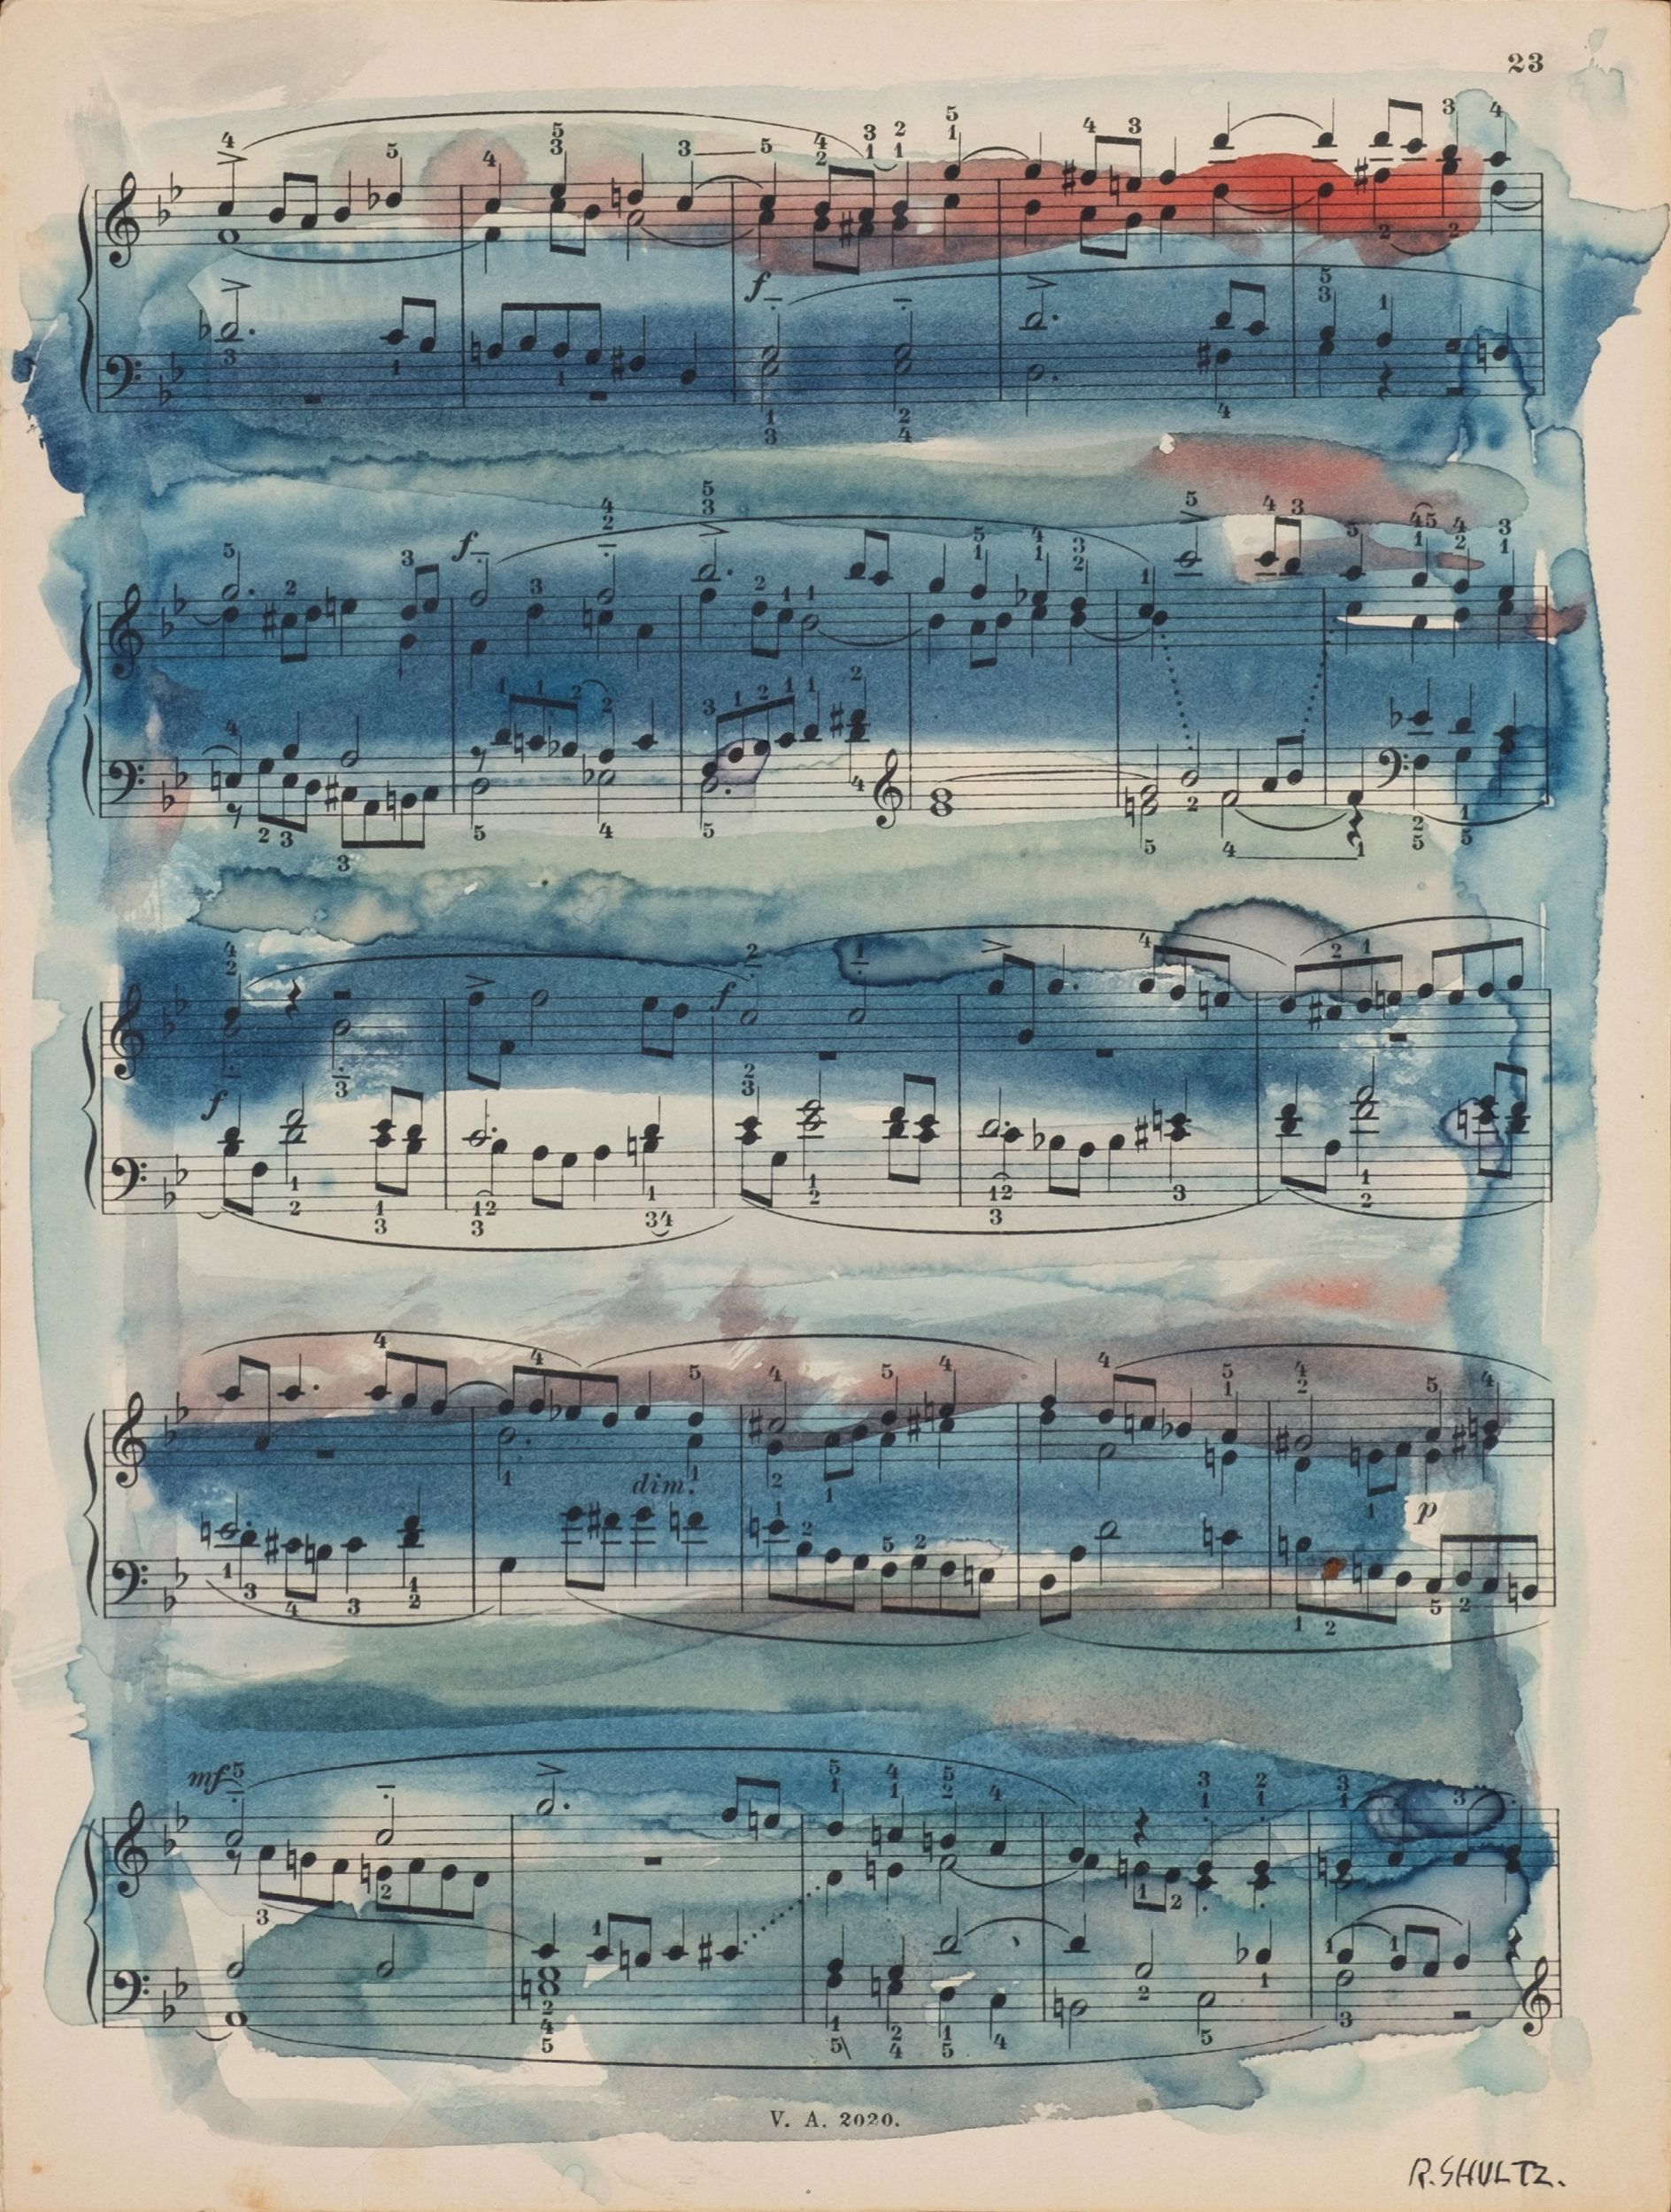 23
f
f
f
f
dim.
p
mf
V. A. 2020.
R.SHULTZ.